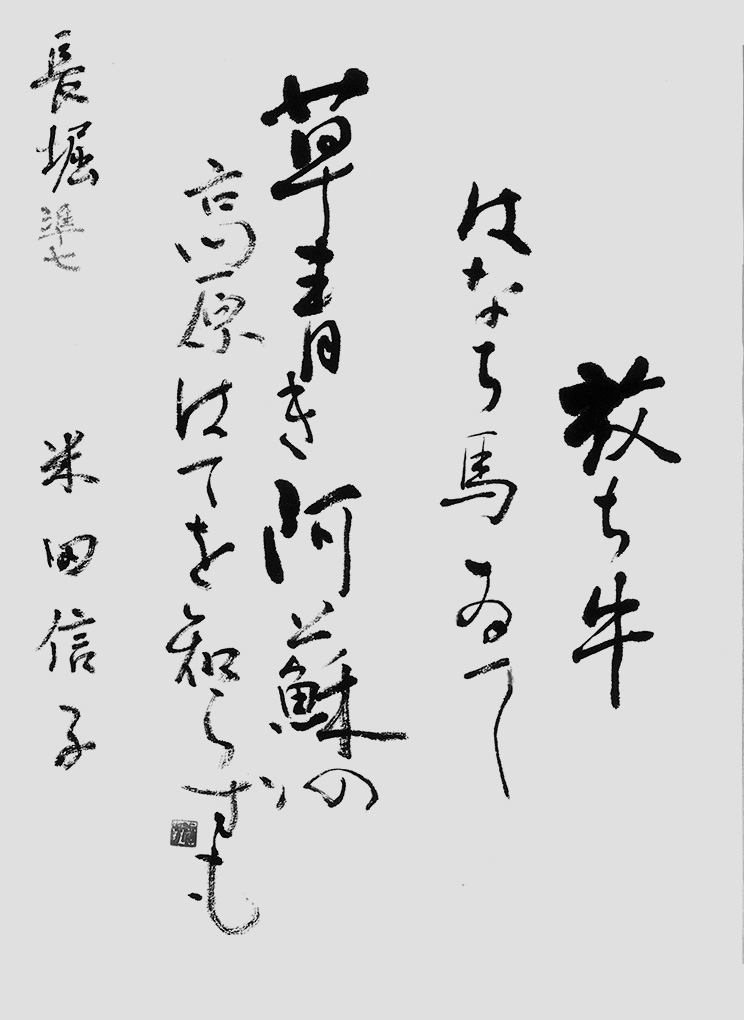 放ち牛
はなち馬ゐて
草青き阿蘇の
高原はてを知らずも
長堀準七
米田信子